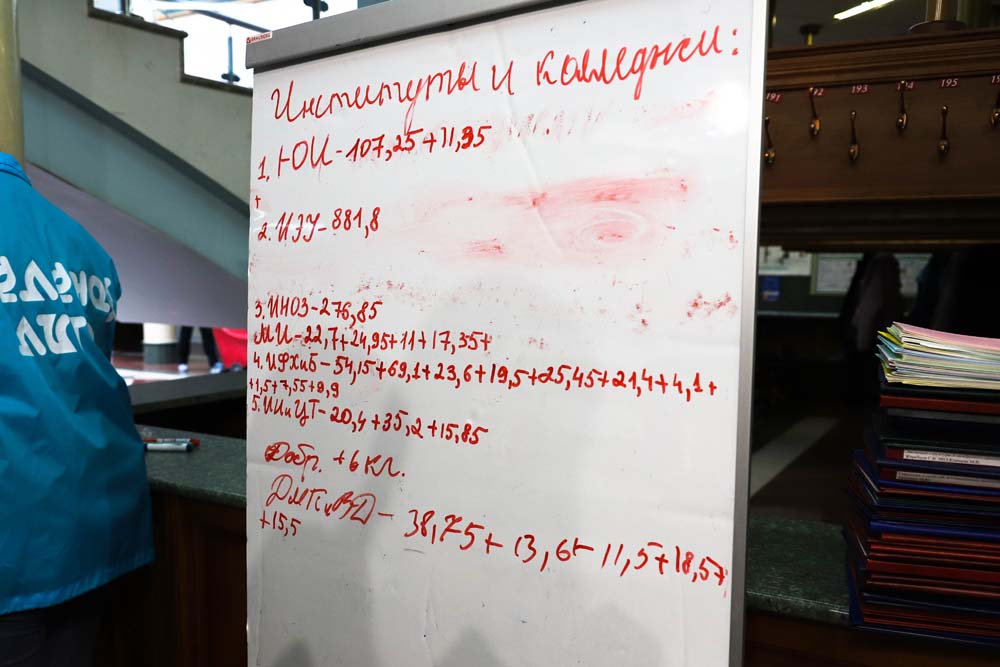 Институты и колледжи:
1. ЮИ - 107,25 + 11,95
+
2. ИЭУ - 881,8
3. ИНОЗ - 276,85
МИ - 22,7 + 24,95 + 11 + 17,35 +
4. ИФХиБ - 54,15 + 69,1 + 23,6 + 19,5 + 25,45 + 21,4 + 4,1 +
+ 1,5 + 7,55 + 9,9
5. ИИиЦТ - 20,4 + 35,2 + 15,85
Добр. + 6 кг.
ДМПиВД - 38,75 + 13,6 + 11,5 + 18,5 +
+ 15,5
191 192 193 194 195